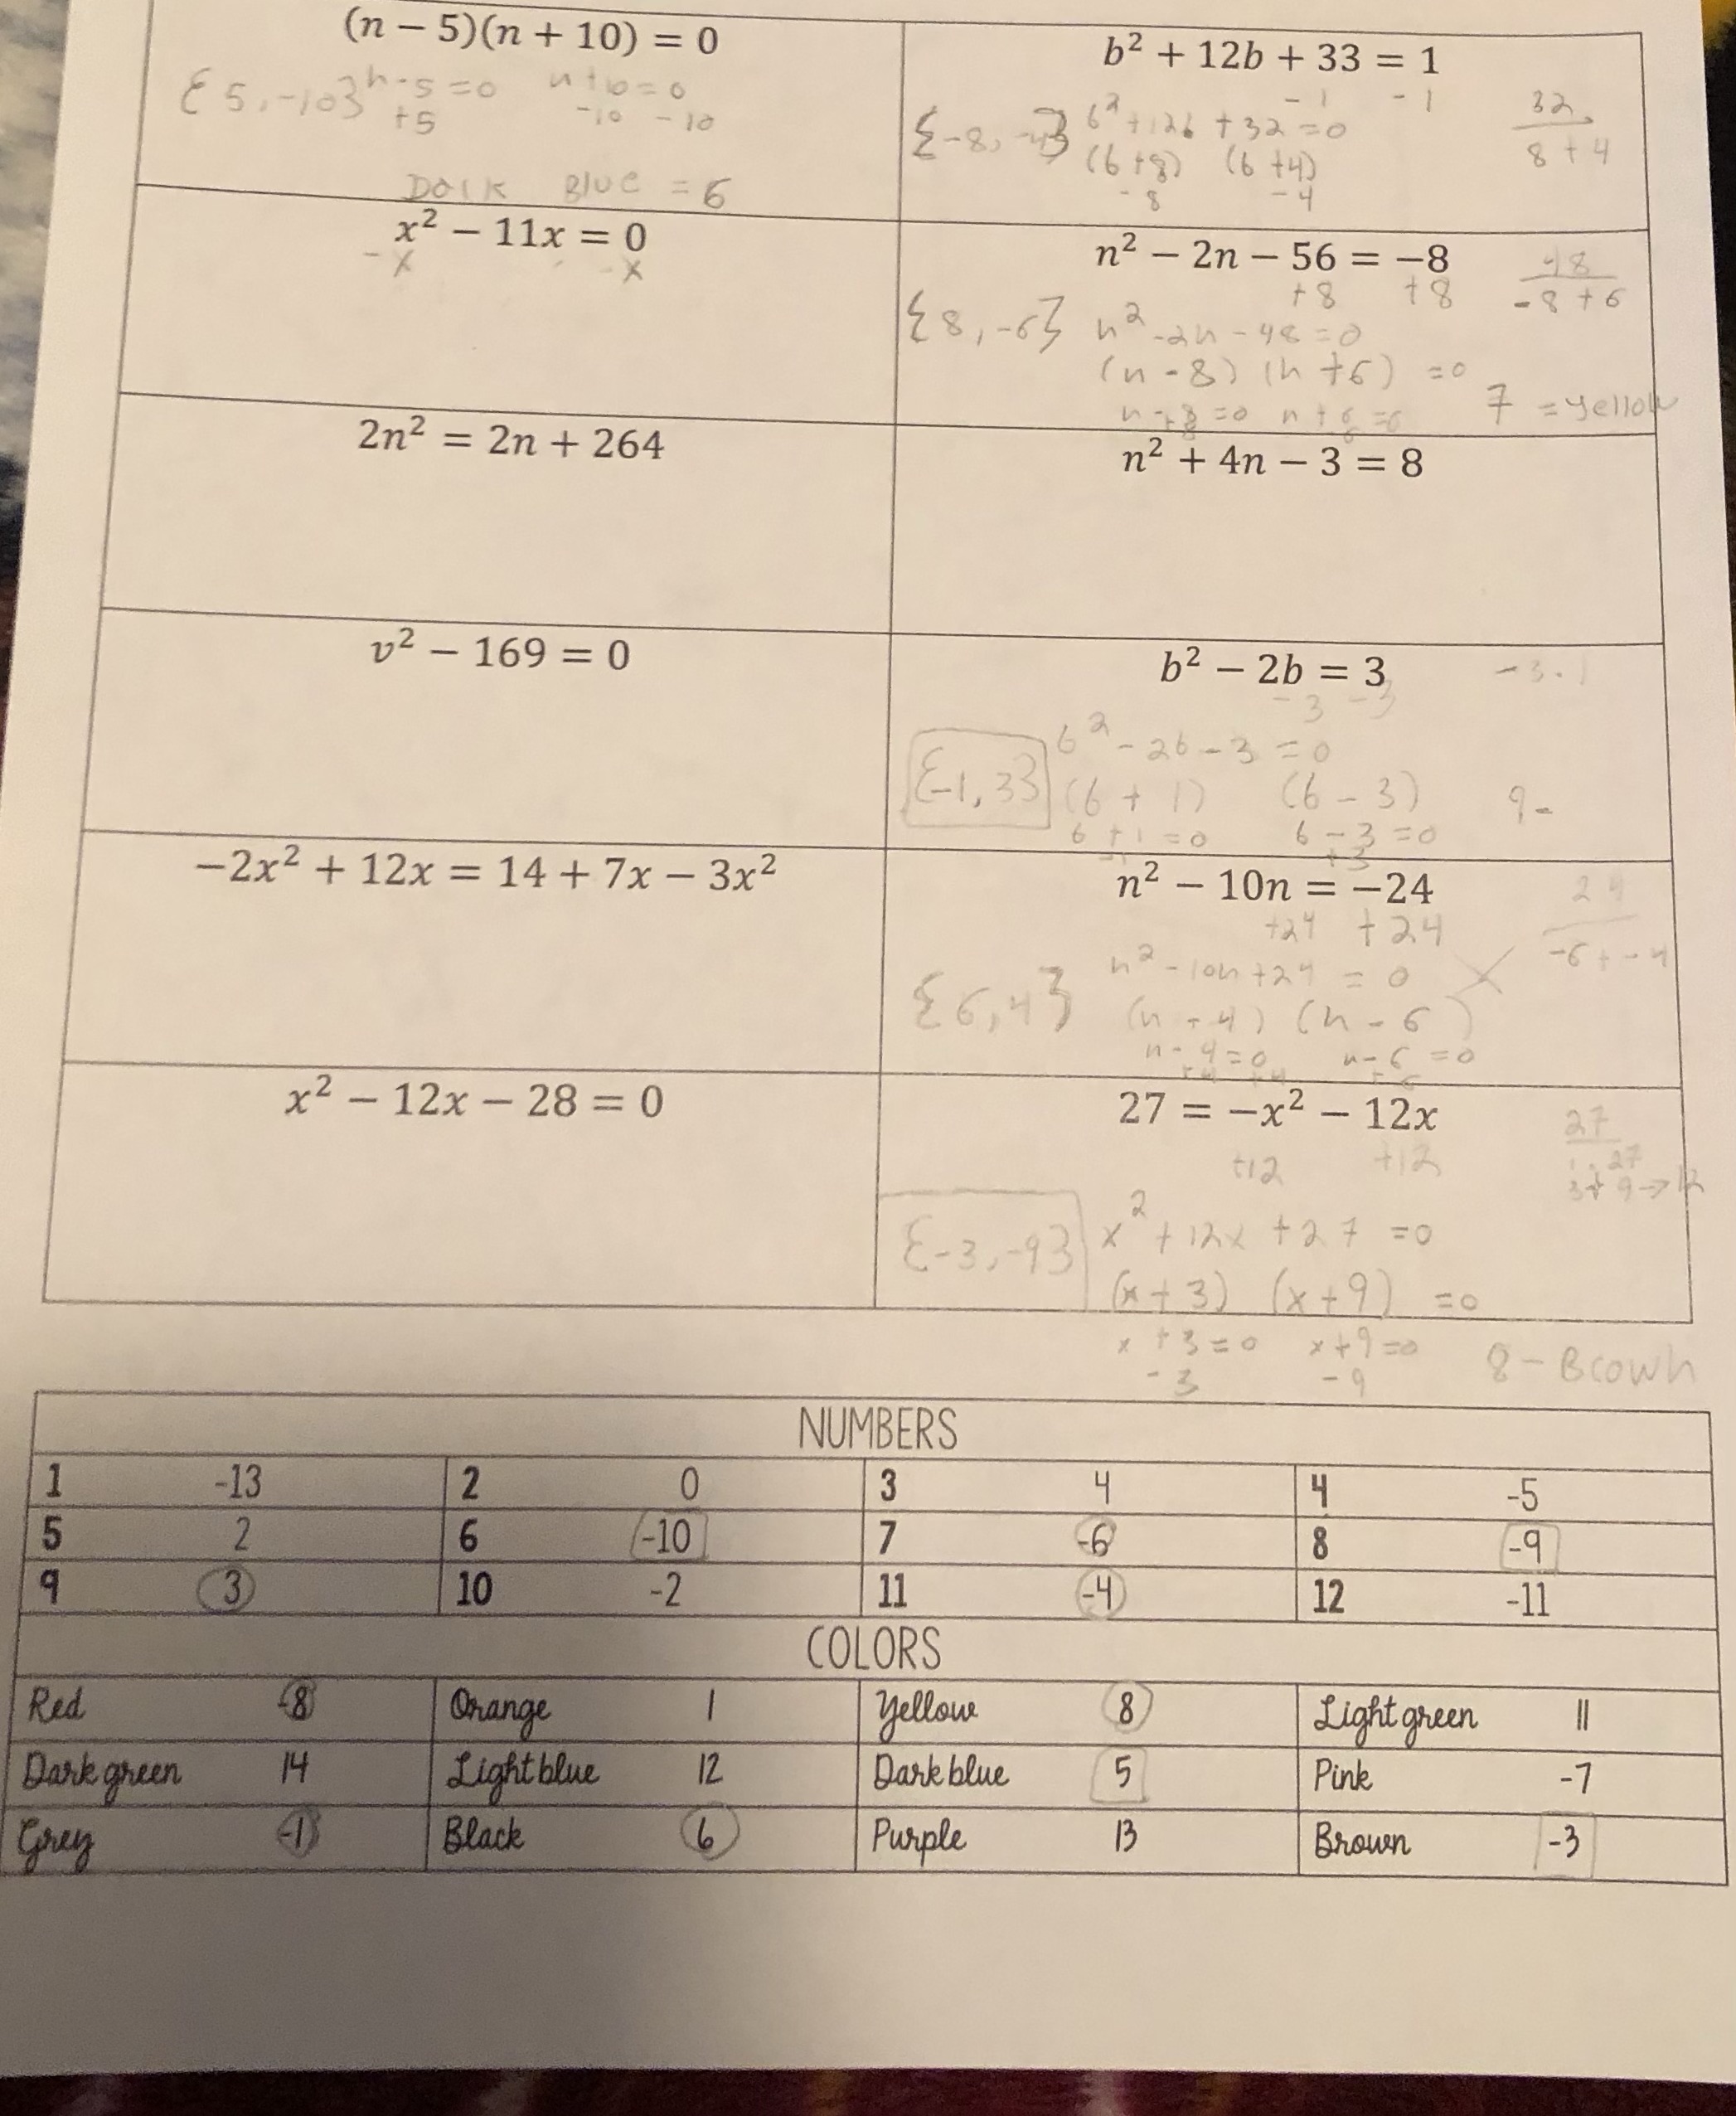 (n − 5)(n + 10) = 0
{5, -10} n-5=0 n+10=0
+5 -10 -10
Dark Blue = 6
b² + 12b + 33 = 1
-1 -1
{-8, -4} b²+12b+32=0
(b+8) (b+4)
-8 -4
32
8+4
x² − 11x = 0
-x -x
n² − 2n − 56 = −8
+8 +8
48
-8+6
{8,-6} n²-2n-48=0
(n-8) (n+6) =0
n-8=0 n+6=0
+8 6
7 = yellow
2n² = 2n + 264
n² + 4n − 3 = 8
v² − 169 = 0
b² − 2b = 3
-3 -3
-3·1
b²-2b-3=0
{-1,3} (b+1) (b-3)
b+1=0 b-3=0
-1 +3
9-
−2x² + 12x = 14 + 7x − 3x²
n² − 10n = −24
+24 +24
24
-6+-4
n²-10n+24=0
{6,4} (n-4) (n-6)
n-4=0 n-6=0
+4 +4 +6
x² − 12x − 28 = 0
27 = −x² − 12x
+12 +12
27
1·27
3+9→12
x²+12x+27=0
{-3,-9} (x+3) (x+9) =0
x+3=0 x+9=0
-3 -9
8-Brown
NUMBERS
1 -13 2 0 3 4 4 -5
5 2 6 -10 7 -6 8 -9
9 3 10 -2 11 -4 12 -11
COLORS
Red -8 Orange 1 Yellow 8 Light green 11
Dark green 14 Light blue 12 Dark blue 5 Pink -7
Grey -1 Black 6 Purple 13 Brown -3